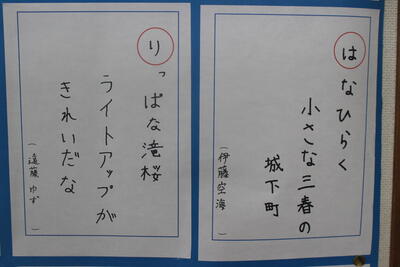 はなひらく
小さな三春の
城下町
(伊藤空海)
りっぱな滝桜
ライトアップが
きれいだな
(遠藤ゆず)